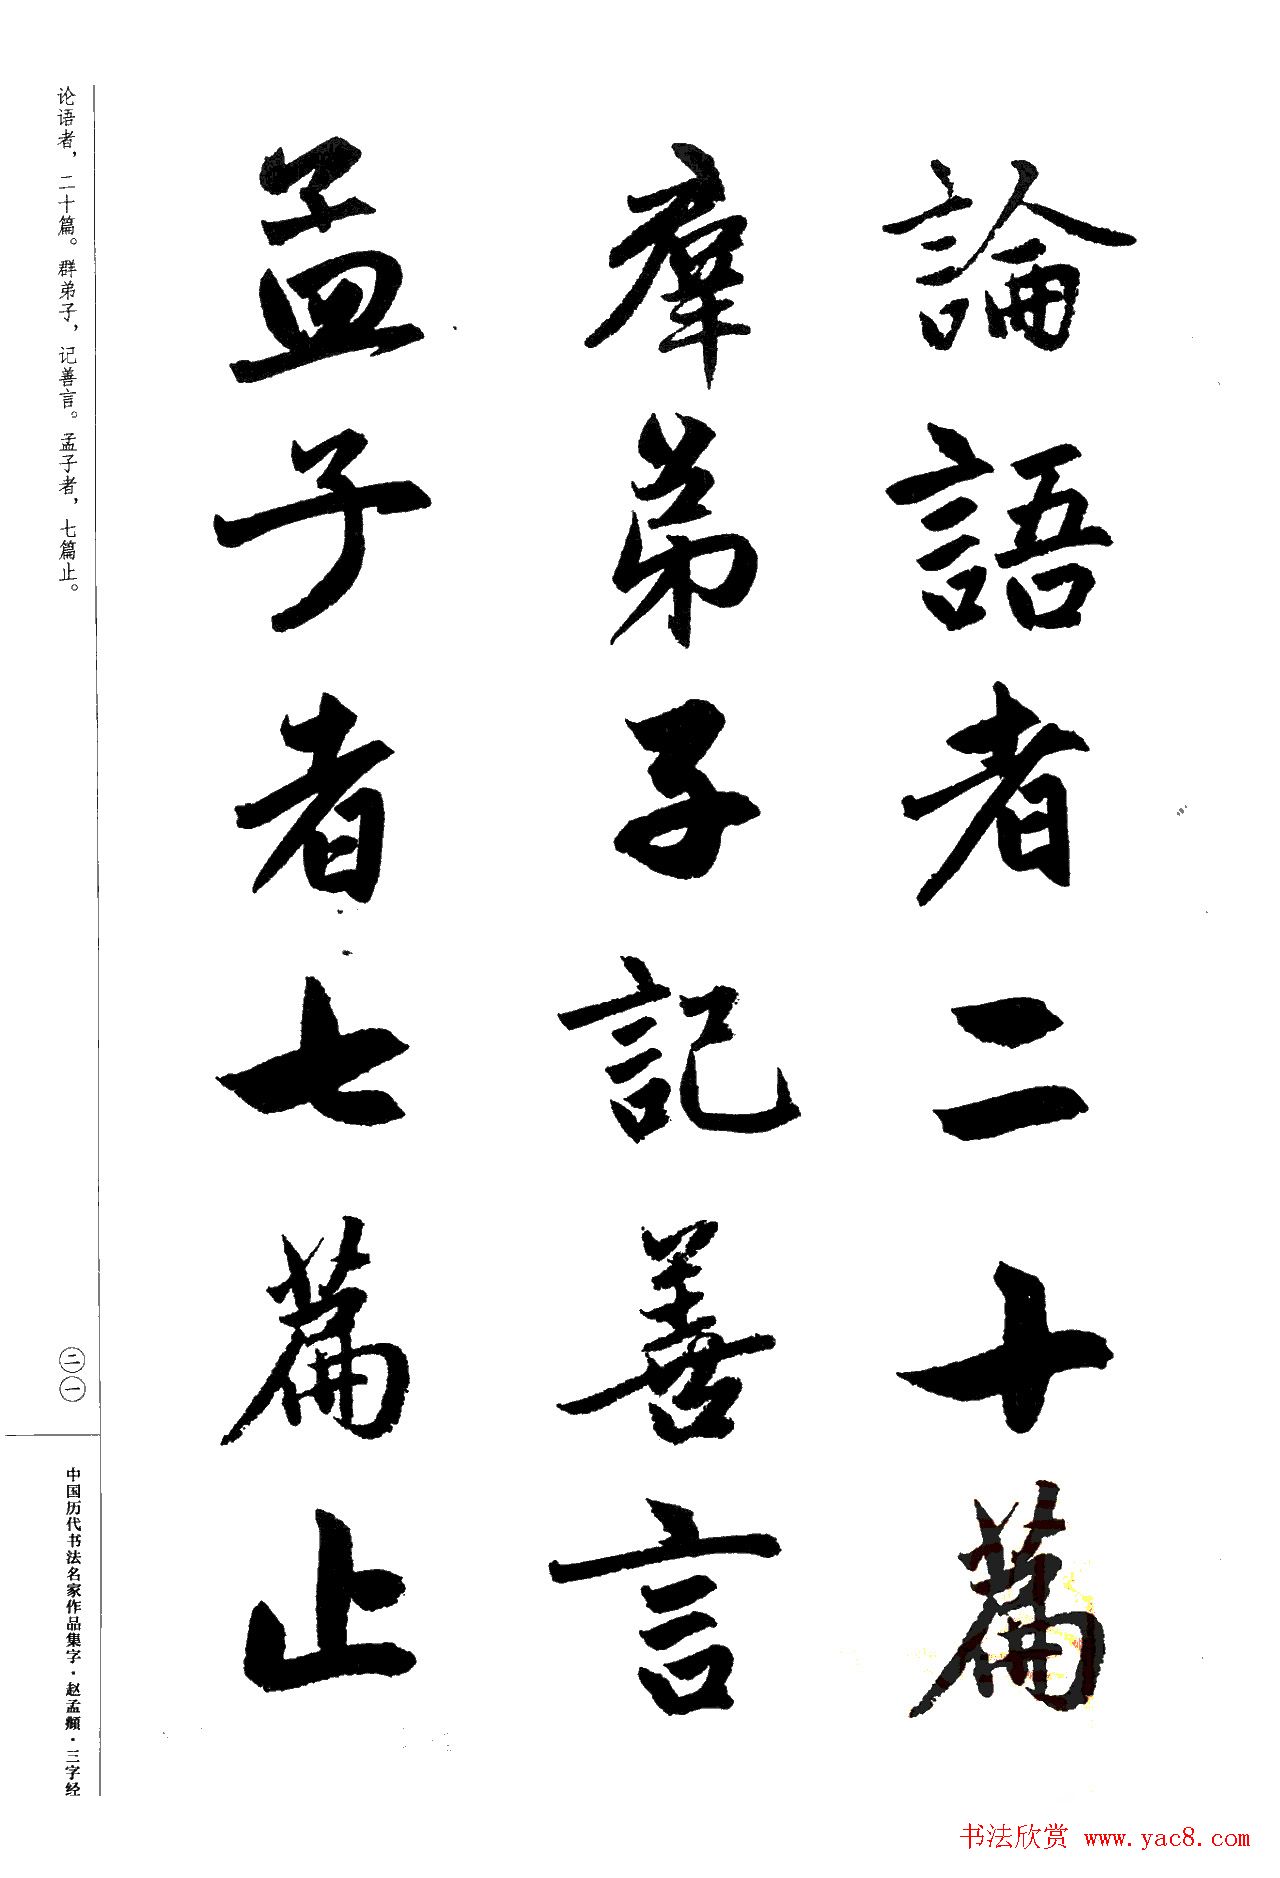 論語者二十篇
羣弟子記善言
孟子者七篇止
论语者，二十篇。群弟子，记善言。孟子者，七篇止。
二一
中国历代书法名家作品集字·赵孟頫·三字经
书法欣赏 www.yac8.com